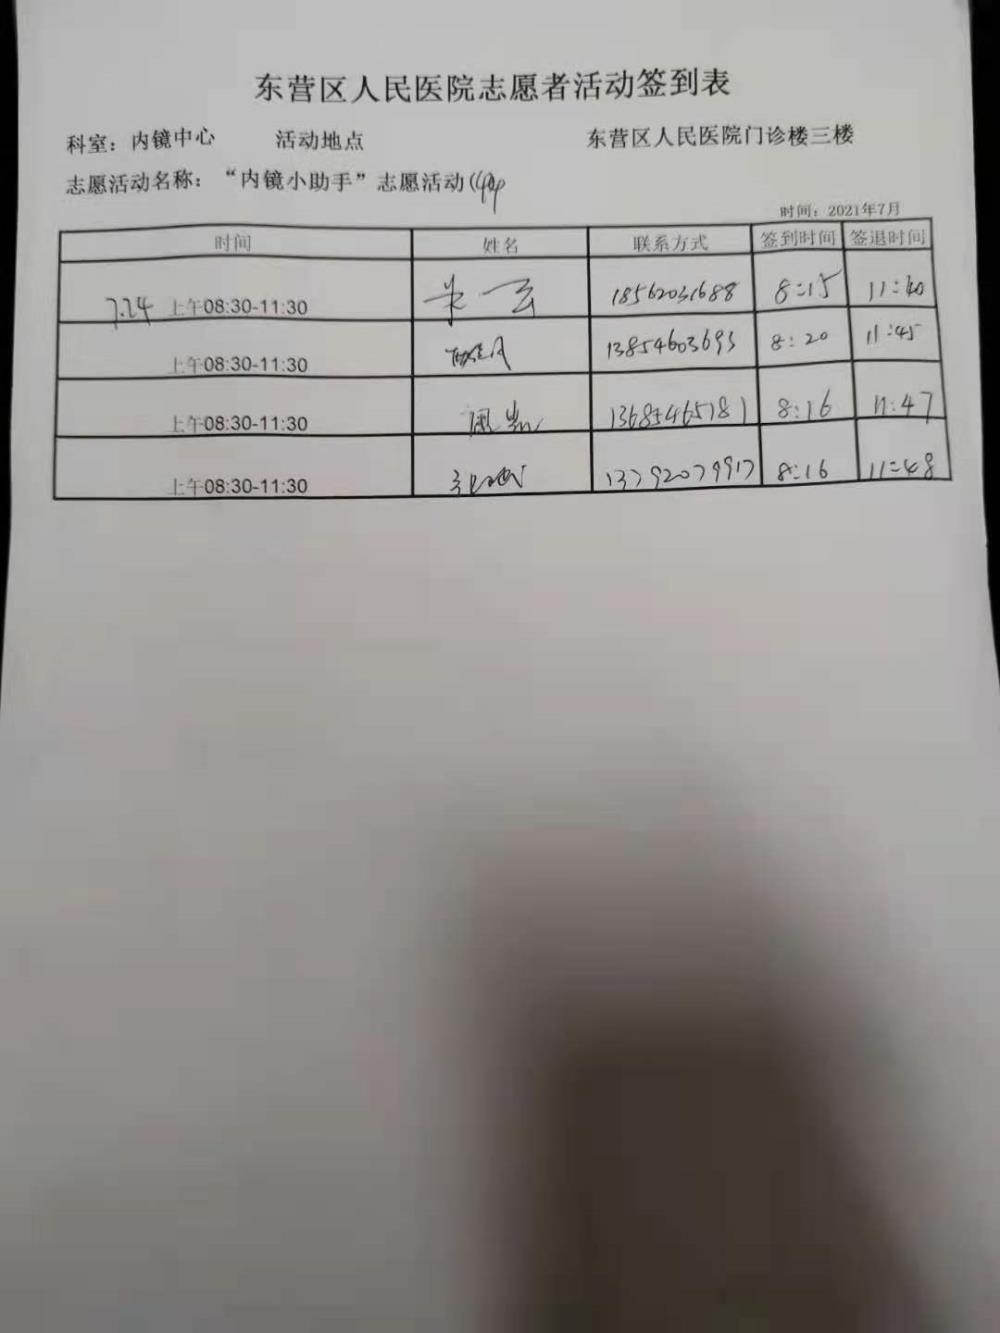 东营区人民医院志愿者活动签到表
科室：内镜中心 活动地点 东营区人民医院门诊楼三楼
志愿活动名称：“内镜小助手”志愿活动
时间：2021年7月
时间 姓名 联系方式 签到时间 签退时间
7.24 上午08:30-11:30 18562031688 8:15 11:40
上午08:30-11:30 13854603693 8:20 11:45
上午08:30-11:30 13685465781 8:16 11:47
上午08:30-11:30 13792079917 8:16 11:48